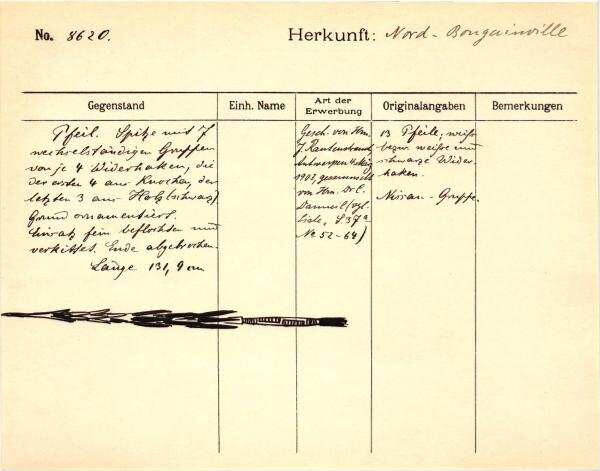 No. 8620.
Herkunft: Nord - Bougainville
Gegenstand
Einh. Name
Art der
Erwerbung
Originalangaben
Bemerkungen
Pfeil. Spitze mit 7
wechselständigen Gruppen
von je 4 Widerhaken, die
der ersten 4 aus Knochen, der
letzten 3 aus Holz (schwarz)
Grund ornamentiert.
fein beflochten und
verkittet. Ende abgebrochen.
Länge 131,9 cm
Gesch. von Hrn.
J. Rautenstrauch,
Antwerpen 4 Mai
1903, gesammelt
von Hrn. Dr. E.
(vgl.
Liste, S 37a
No 52-64)
13 Pfeile, weiße
bezw. weiße und
schwarze Wider-
haken.
Gruppe.